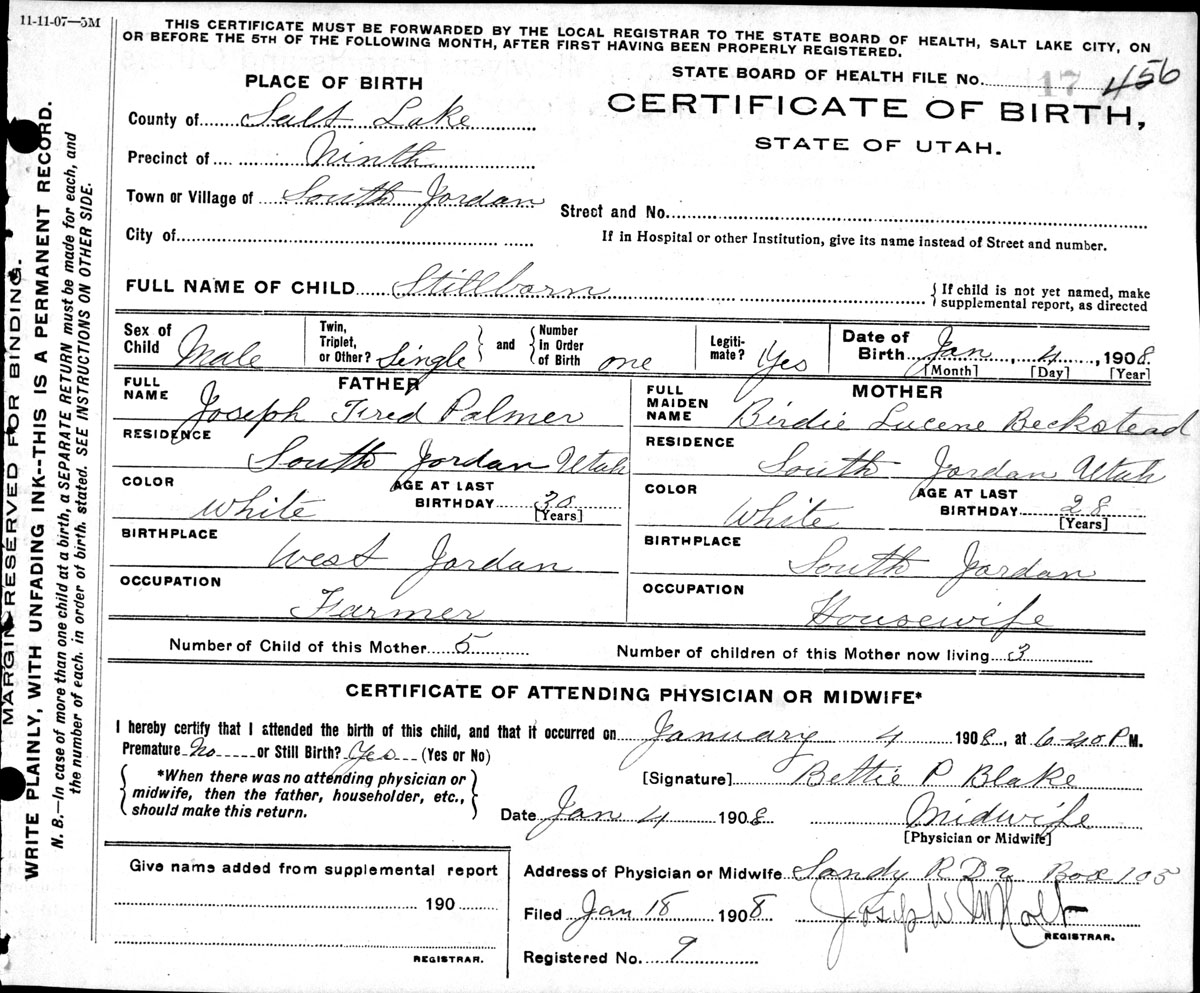 11-11-07—5M
THIS CERTIFICATE MUST BE FORWARDED BY THE LOCAL REGISTRAR TO THE STATE BOARD OF HEALTH, SALT LAKE CITY, ON
OR BEFORE THE 5TH OF THE FOLLOWING MONTH, AFTER FIRST HAVING BEEN PROPERLY REGISTERED.
MARGIN RESERVED FOR BINDING.
WRITE PLAINLY, WITH UNFADING INK--THIS IS A PERMANENT RECORD.
N. B.—In case of more than one child at a birth, a SEPARATE RETURN must be made for each, and
the number of each, in order of birth, stated. SEE INSTRUCTIONS ON OTHER SIDE.
STATE BOARD OF HEALTH FILE No. 17 456
PLACE OF BIRTH
CERTIFICATE OF BIRTH,
STATE OF UTAH.
County of Salt Lake
Precinct of Ninth
Town or Village of South Jordan
Street and No.
City of
If in Hospital or other Institution, give its name instead of Street and number.
FULL NAME OF CHILD Stillborn
If child is not yet named, make
supplemental report, as directed
Sex of Child Male
Twin, Triplet, or Other? Single and Number In Order of Birth one
Legitimate? Yes
Date of Birth Jan, 4, 1908
[Month] [Day] [Year]
FATHER
FULL NAME Joseph Fred Palmer
MOTHER
FULL MAIDEN NAME Birdie Lucene Beckstead
RESIDENCE South Jordan Utah
RESIDENCE South Jordan Utah
COLOR White AGE AT LAST BIRTHDAY 30 [Years]
COLOR White AGE AT LAST BIRTHDAY 28 [Years]
BIRTHPLACE West Jordan
BIRTHPLACE South Jordan
OCCUPATION Farmer
OCCUPATION Housewife
Number of Child of this Mother 5 Number of children of this Mother now living 3
CERTIFICATE OF ATTENDING PHYSICIAN OR MIDWIFE*
I hereby certify that I attended the birth of this child, and that it occurred on January 4 1908, at 6 40 P M.
Premature No or Still Birth? Yes (Yes or No)
*When there was no attending physician or
midwife, then the father, householder, etc.,
should make this return.
[Signature] Bettie P Blake
Date Jan 4 1908 Midwife
[Physician or Midwife]
Give name added from supplemental report
190
REGISTRAR.
Address of Physician or Midwife Sandy R D 2 Box 105
Filed Jan 18 1908 Joseph M Holt
REGISTRAR.
Registered No. 9